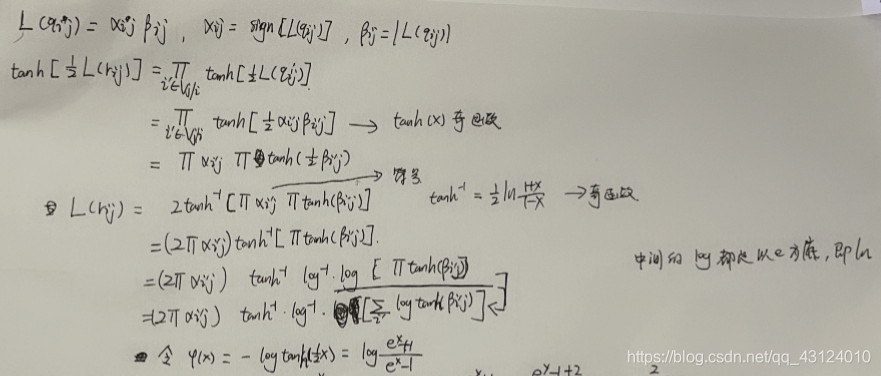 L(qij) = αij βij , αij = sign[L(qij)] , βij = |L(qij)|
tanh[½L(rij)] = ∏ i'∈Vj/i tanh[½L(qi'j)]
= ∏ i'∈Vj/i tanh[½αijβij] → tanh(x) 奇函数
= ∏ αij ∏ tanh(½βij) → 符号
L(rij) = 2tanh⁻¹[∏ αij ∏ tanh(βij)] tanh⁻¹ = ½ ln (1+x)/(1-x) → 奇函数
=(2∏ αij) tanh⁻¹[∏ tanh(βij)].
中间的 log 都是以 e 为底, 即 ln
=(2∏ αij) tanh⁻¹ log⁻¹ · log [∏ tanh(βij)]
=(2∏ αij) tanh⁻¹ · log⁻¹ · [∑ i' log tanh(βij)]
令 φ(x) = -log tanh(½x) = log (eˣ+1)/(eˣ-1)
eˣ-1+2 2
https://blog.csdn.net/qq_43124010